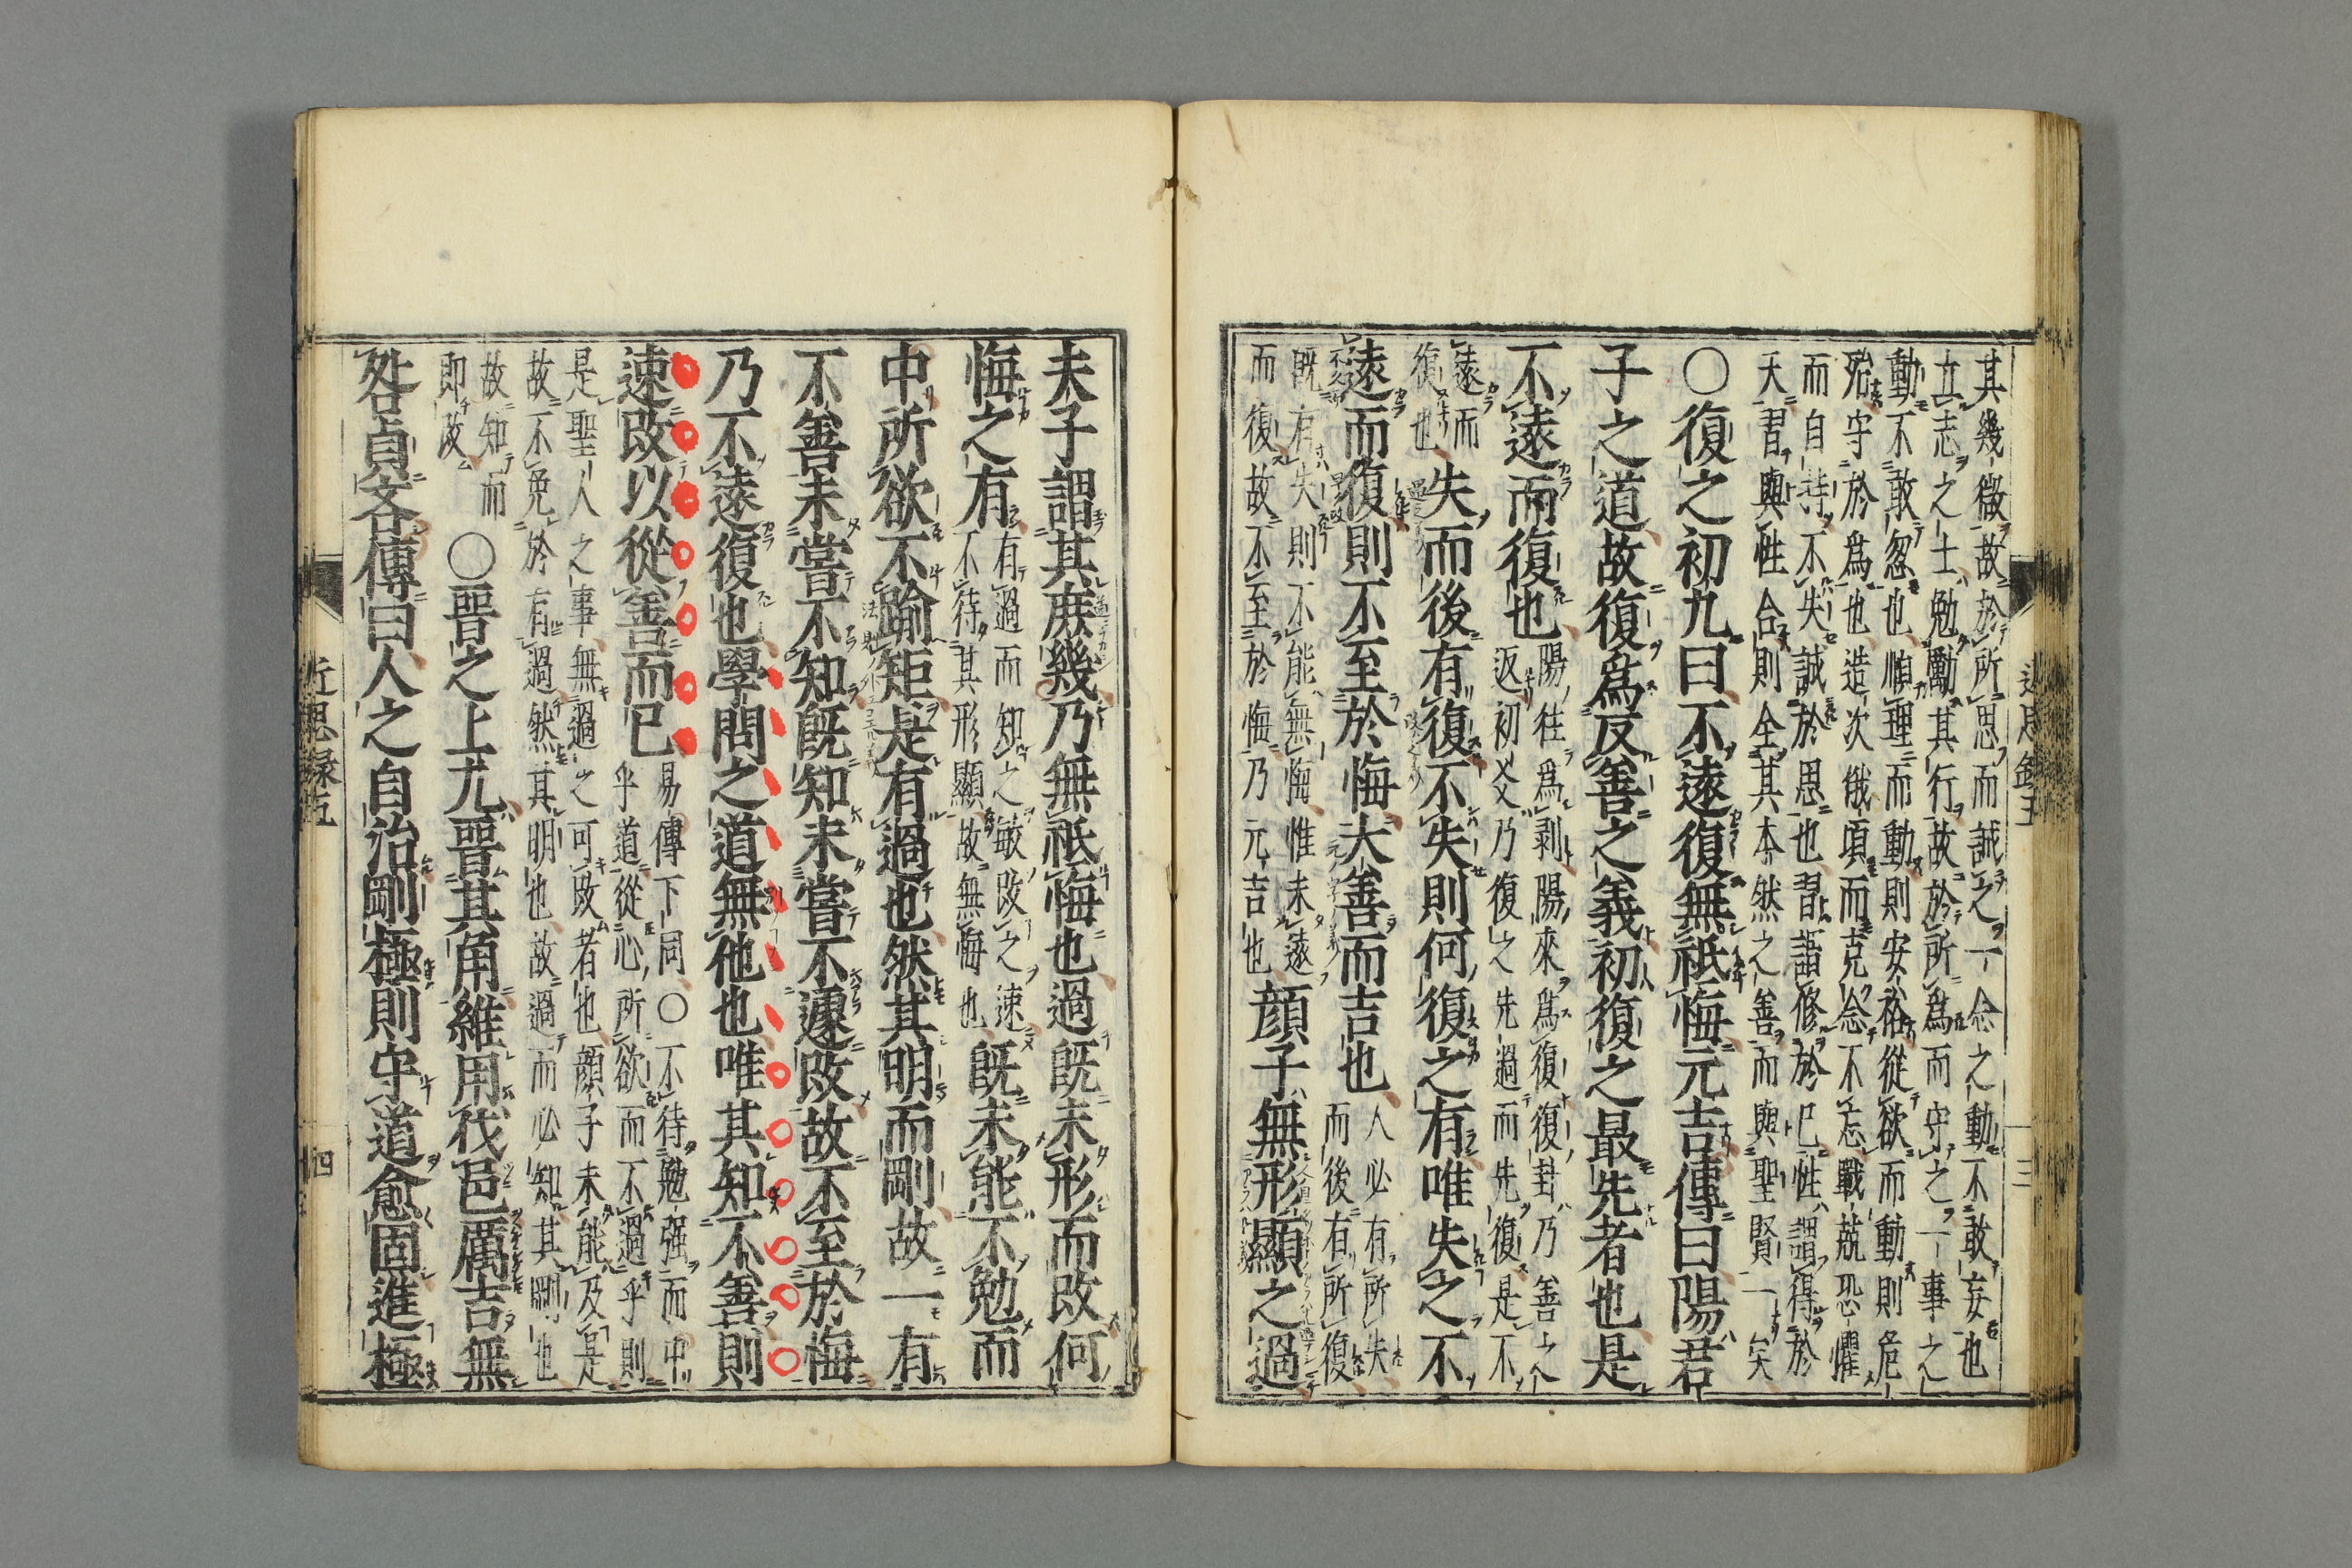 其幾微故於所思而誠之一念之動不敢妄也
立志之士勉勵其行故於所爲而守之一事之
動不敢忽也順理而動則安裕從欲而動則危
殆守於爲也造次俄頃而克念不忘戰兢恐懼
而自持不失誠於思也習謂修於已性謂得於
天習與性合則全其本然之善而與聖賢一矣
○復之初九曰不遠復無祗悔元吉傳曰陽君
子之道故復爲反善之義初復之最先者也是
不遠而復也
陽往爲剥陽來爲復復卦乃善之
返初爻乃復之先過而先復是不
遠而
復也
失而後有復不失則何復之有唯失之不
遠而復則不至於悔大善而吉也
人必有所失
而後有所復
既有失則不能無悔惟未遠
而復故不至於悔乃元吉也
顔子無形顯之過
夫子謂其庶幾乃無祗悔也過既未形而改何
悔之有
有過而知之敏改之速
不待其形顯故無悔也
既未能不勉而
中所欲不踰矩是有過也然其明而剛故一有
不善未嘗不知既知未嘗不遽改故不至於悔
乃不遠復也學問之道無他也唯其知不善則
速改以從善而已
易傳下同○不待勉强而中
乎道從心所欲而不過乎則
是聖人之事無過之可改者也顔子未能及是
故不免於有過然其明也故過而必知其剛也
故知而
即改
○晉之上九晉其角維用伐邑厲吉無
咎貞吝傳曰人之自治剛極則守道愈固進極
近思録五
四
三